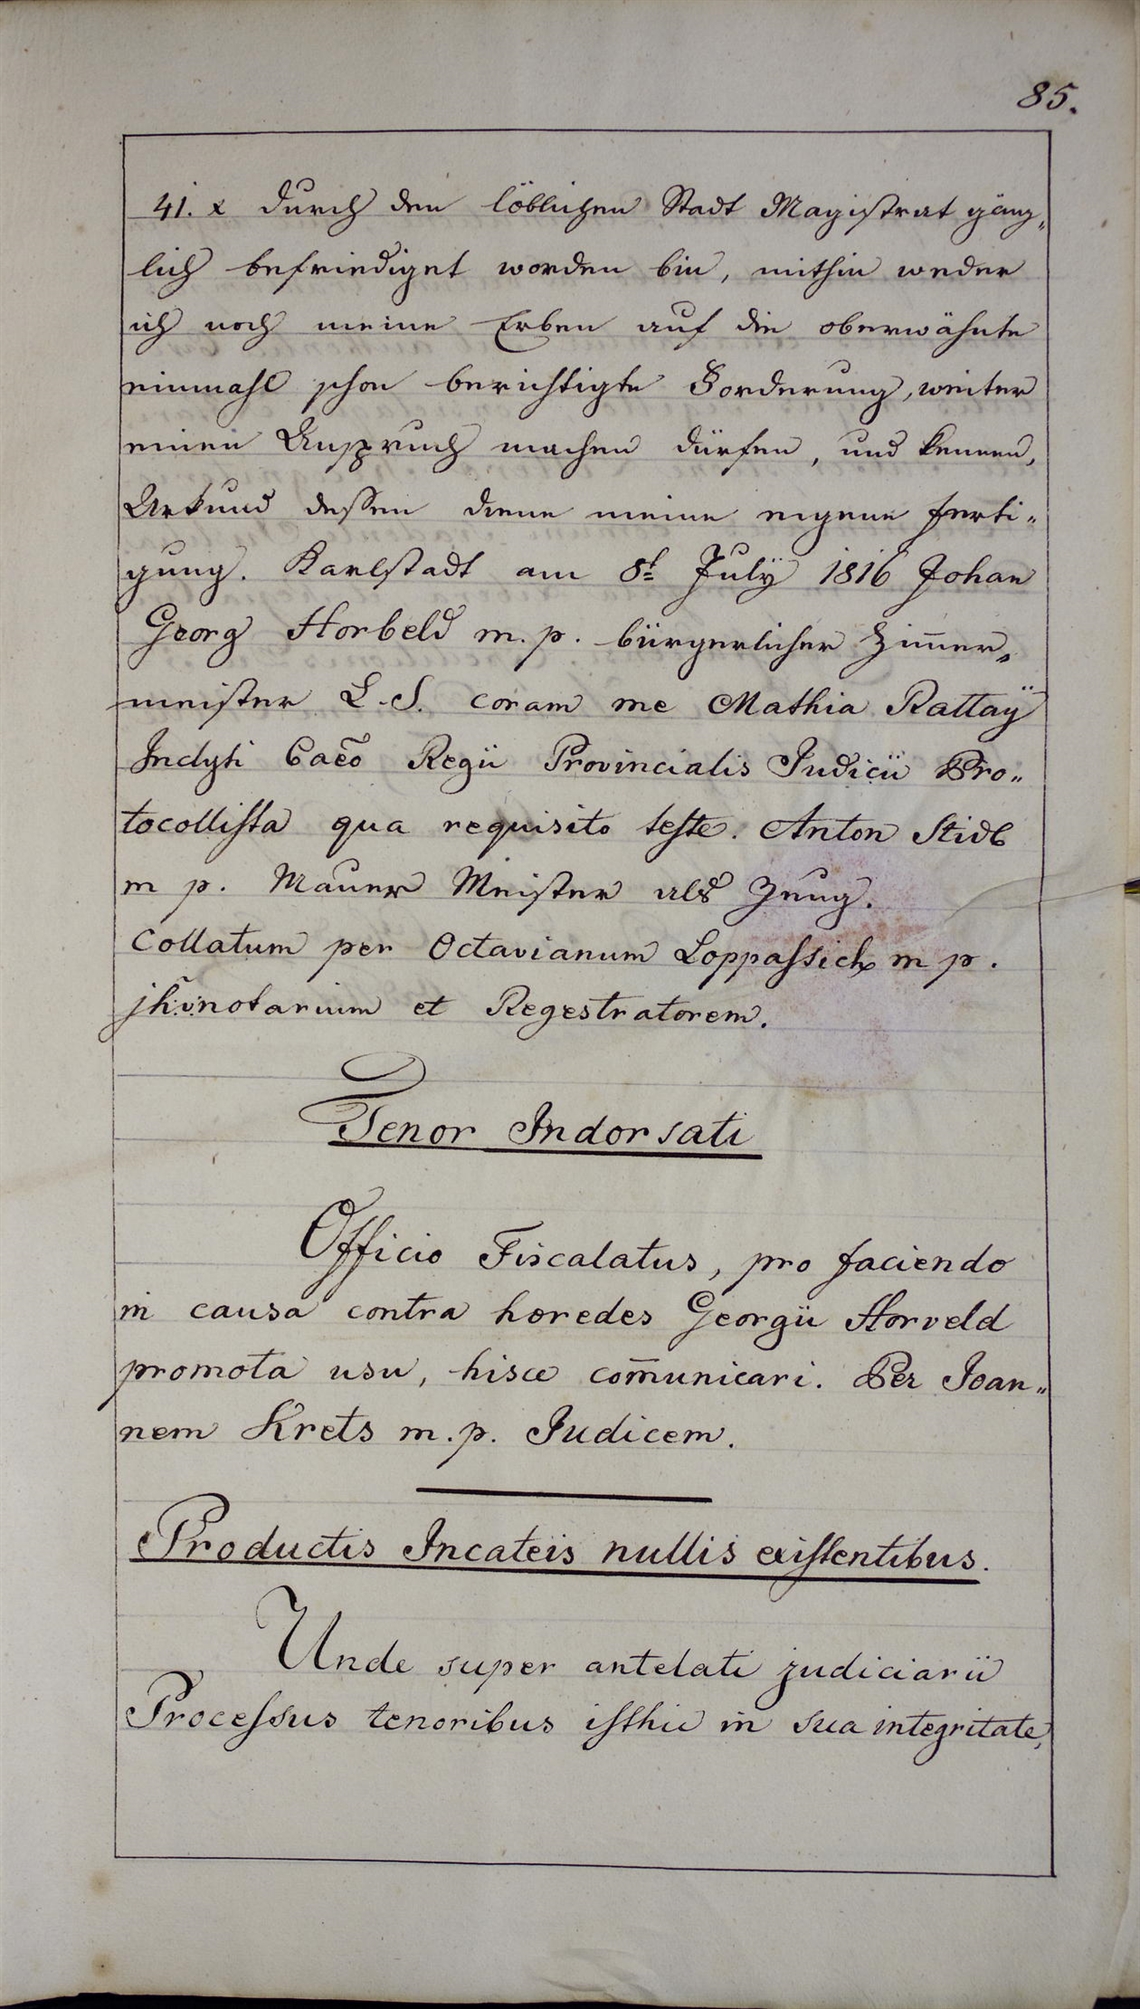 85.
41. x durch den löblichen Stadt Magistrat gänz„
lich befriediget worden bin, mithin weder
ich noch meine Erben auf die oberwähnte
einmahl schon berichtigte Forderung, weiter
einen Anspruch machen dürfen, und kennen,
Urkund dessen diene meine eigene ferti„
gung. Karlstadt am 8t July 1816 Johan
Georg Horbeld m. p. bürgerlicher Zim̅er„
meister L. S. coram me Mathia Rattaÿ
Inclyti Caeo Regii Provincialis Judicii Pro„
tocollista qua requisito teste. Anton Stidl
m p. Mauer Meister als Zeug.
Collatum per Octavianum Loppassich m p.
notarium et Regestratorem.
Tenor Indorsati
Officio Fiscalatus, pro faciendo
in causa contra hoeredes Georgii Horveld
promota usu, hisce com̅unicari. Per Joan„
nem Krets m. p. Judicem.
Productis Incateis nullis existentibus.
Unde super antelati judiciarii
Processus tenoribus isthic in sua integritate,